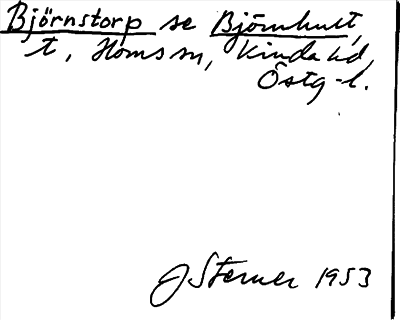 Björnstorp se Björnhult,
t, Homs sn, Kinda hd,
Östg-l.
J Sterner 1953